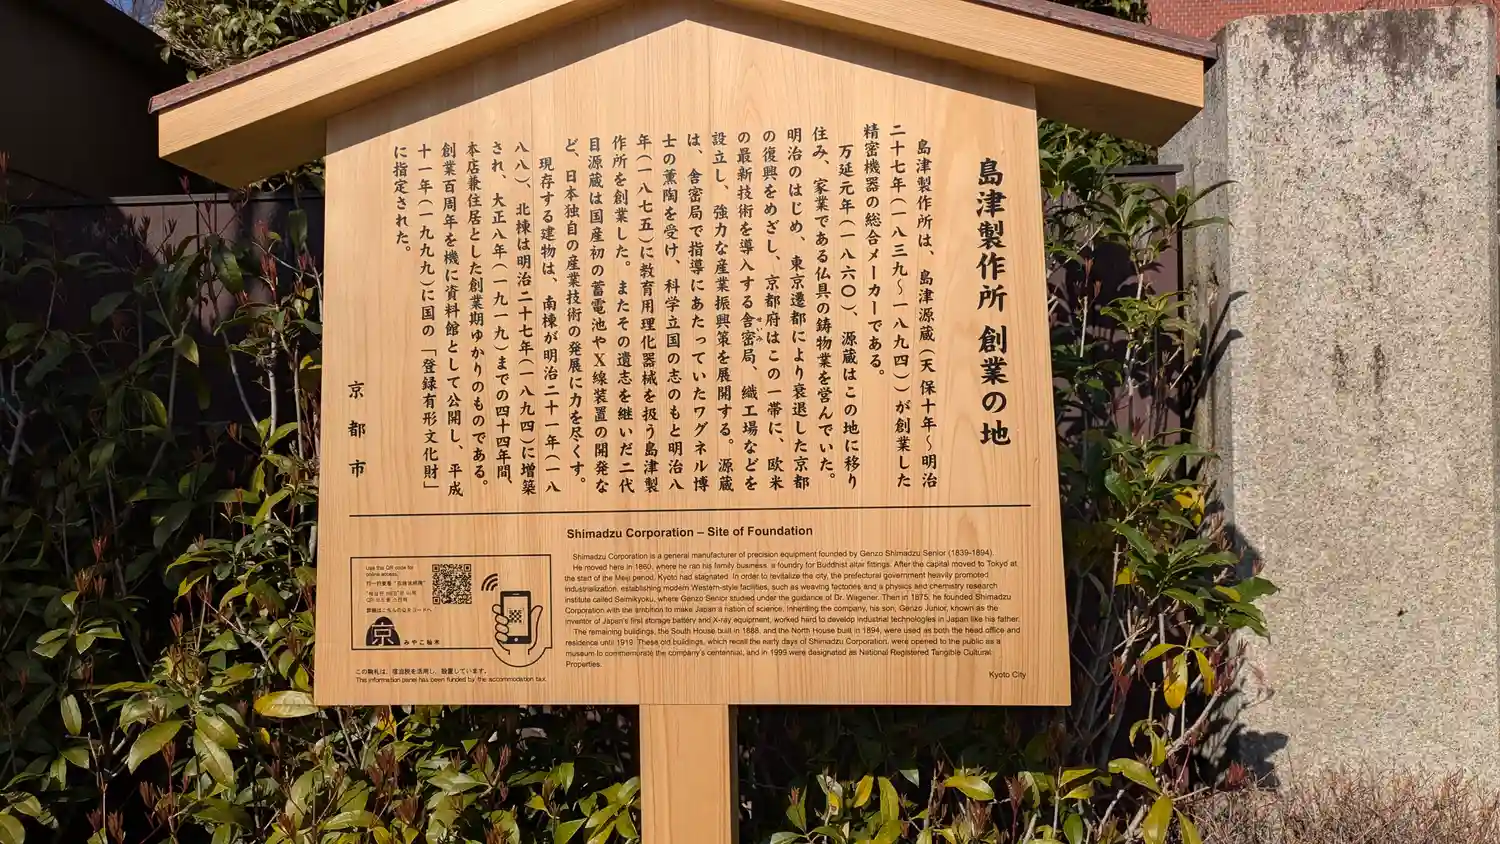 島津製作所 創業の地
島津製作所は、島津源蔵(天保十年〜明治
二十七年(一八三九〜一八九四))が創業した
精密機器の総合メーカーである。
万延元年(一八六〇)、源蔵はこの地に移り
住み、家業である仏具の鋳物業を営んでいた。
明治のはじめ、東京遷都により衰退した京都
の復興をめざし、京都府はこの一帯に、欧米
の最新技術を導入する舎密局、織工場などを
せいみ
設立し、強力な産業振興策を展開する。源蔵
は、舎密局で指導にあたっていたワグネル博
士の薫陶を受け、科学立国の志のもと明治八
年(一八七五)に教育用理化器械を扱う島津製
作所を創業した。またその遺志を継いだ二代
目源蔵は国産初の蓄電池やX線装置の開発な
ど、日本独自の産業技術の発展に力を尽くす。
現存する建物は、南棟が明治二十一年(一八
八八)、北棟は明治二十七年(一八九四)に増築
され、大正八年(一九一九)までの四十四年間、
本店兼住居とした創業期ゆかりのものである。
創業百周年を機に資料館として公開し、平成
十一年(一九九九)に国の「登録有形文化財」
に指定された。
京都市
Shimadzu Corporation – Site of Foundation
Shimadzu Corporation is a general manufacturer of precision equipment founded by Genzo Shimadzu Senior (1839-1894).
He moved here in 1860, where he ran his family business, a foundry for Buddhist altar fittings. After the capital moved to Tokyo at
the start of the Meiji period, Kyoto had stagnated. In order to revitalize the city, the prefectural government heavily promoted
industrialization, establishing modern Western-style facilities, such as weaving factories and a physics and chemistry research
institute called Seimikyoku, where Genzo Senior studied under the guidance of Dr. Wagener. Then in 1875, he founded Shimadzu
Corporation with the ambition to make Japan a nation of science. Inheriting the company, his son, Genzo Junior, known as the
inventor of Japan's first storage battery and X-ray equipment, worked hard to develop industrial technologies in Japan like his father.
The remaining buildings, the South House built in 1888, and the North House built in 1894, were used as both the head office and
residence until 1919. These old buildings, which recall the early days of Shimadzu Corporation, were opened to the public as a
museum to commemorate the company's centennial, and in 1999 were designated as National Registered Tangible Cultural
Properties.
Kyoto City
Use this QR code for
online access.
詳細はこちらのQRコードへ
京
みやこ駒札
この駒札は、宿泊税を活用し、設置しています。
This information panel has been funded by the accommodation tax.